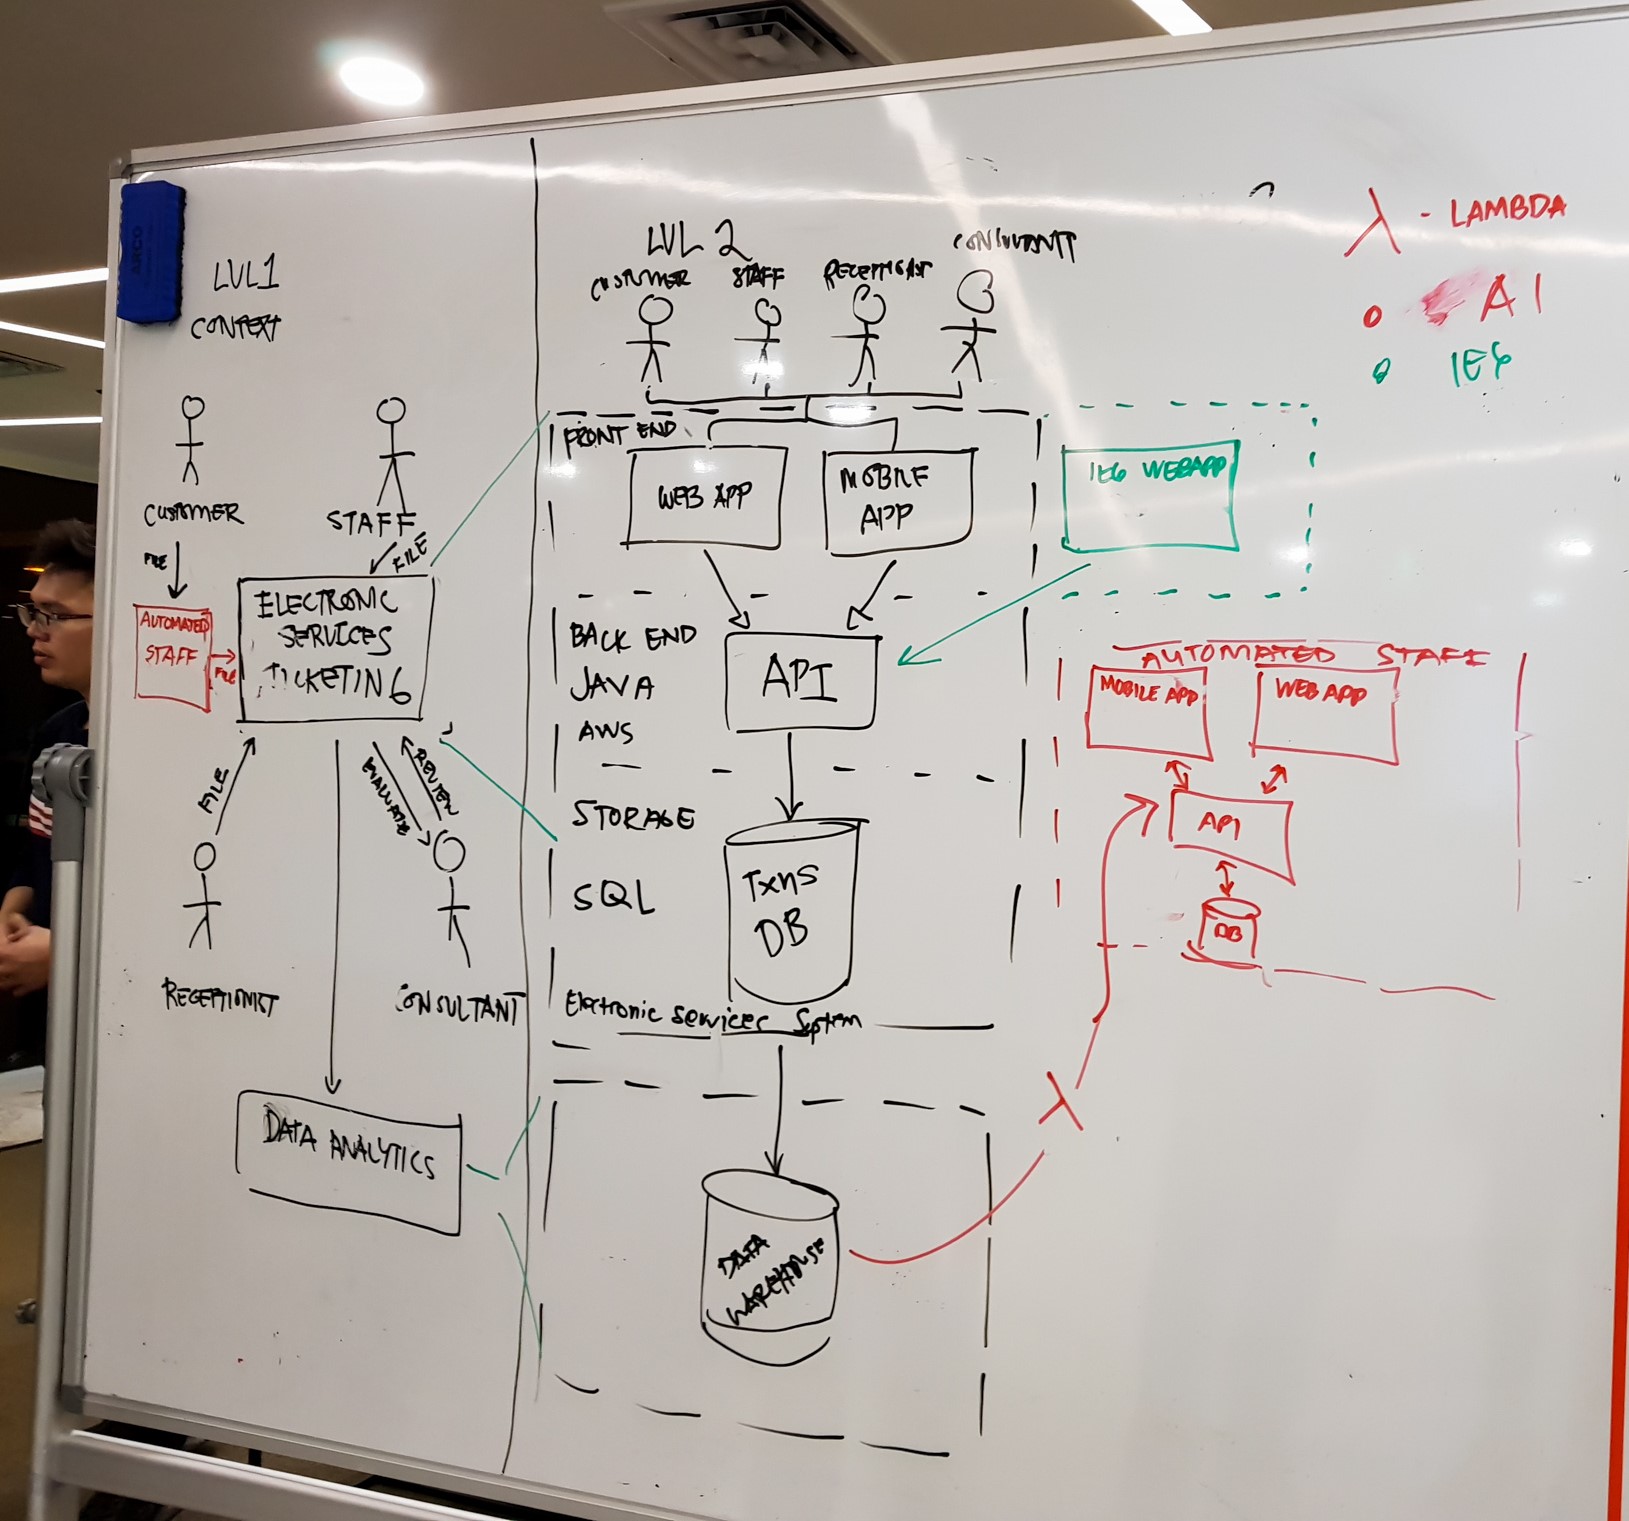 ARCO
LVL1
CONTEXT
CUSTOMER
STAFF
FILE
FILE
AUTOMATED
STAFF
FILE
ELECTRONIC
SERVICES
TICKETING
FILE
EVALUATE
REVIEW
RECEPTIONIST
CONSULTANT
DATA ANALYTICS
LVL 2
CUSTOMER
STAFF
RECEPTIONIST
CONSULTANT
FRONT END
WEB APP
MOBILE
APP
BACK END
JAVA
AWS
API
STORAGE
SQL
Txns
DB
Electronic Services System
DATA
WAREHOUSE
λ - LAMBDA
AI
IE6
IE6 WEBAPP
AUTOMATED STAFF
MOBILE APP
WEB APP
API
DB
λ